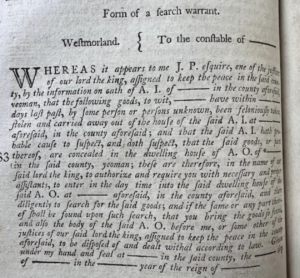 Form of a search warrant.
Westmorland. { To the constable of ———
WHEREAS it appears to me J. P. esquire, one of the justices
of our lord the king, assigned to keep the peace in the said coun-
ty, by the information on oath of A. I. of ——— in the county aforesaid,
yeoman, that the following goods, to wit, ——— have within ———
days last past, by some person or persons unknown, been feloniously taken,
stolen and carried away out of the house of the said A. I. at ———
aforesaid, in the county aforesaid; and that the said A. I. hath pro-
bable cause to suspect, and doth suspect, that the said goods, or part
thereof, are concealed in the dwelling house of A. O. of ———
in the said county, yeoman; these are therefore, in the name of our
said lord the king, to authorize and require you with necessary and proper
assistants, to enter in the day time into the said dwelling house of the
said A. O. at ——— aforesaid, in the county aforesaid, and there
diligently to search for the said goods; and if the same or any part thereof
shall be found upon such search, that you bring the goods so found,
and also the body of the said A. O. before me, or some other of the
justices of our said lord the king, assigned to keep the peace in the county
aforesaid, to be disposed of and dealt withal according to law. Given
under my hand and seal at ——— in the said county, the ———
of ——— in the ——— year of the reign of ———